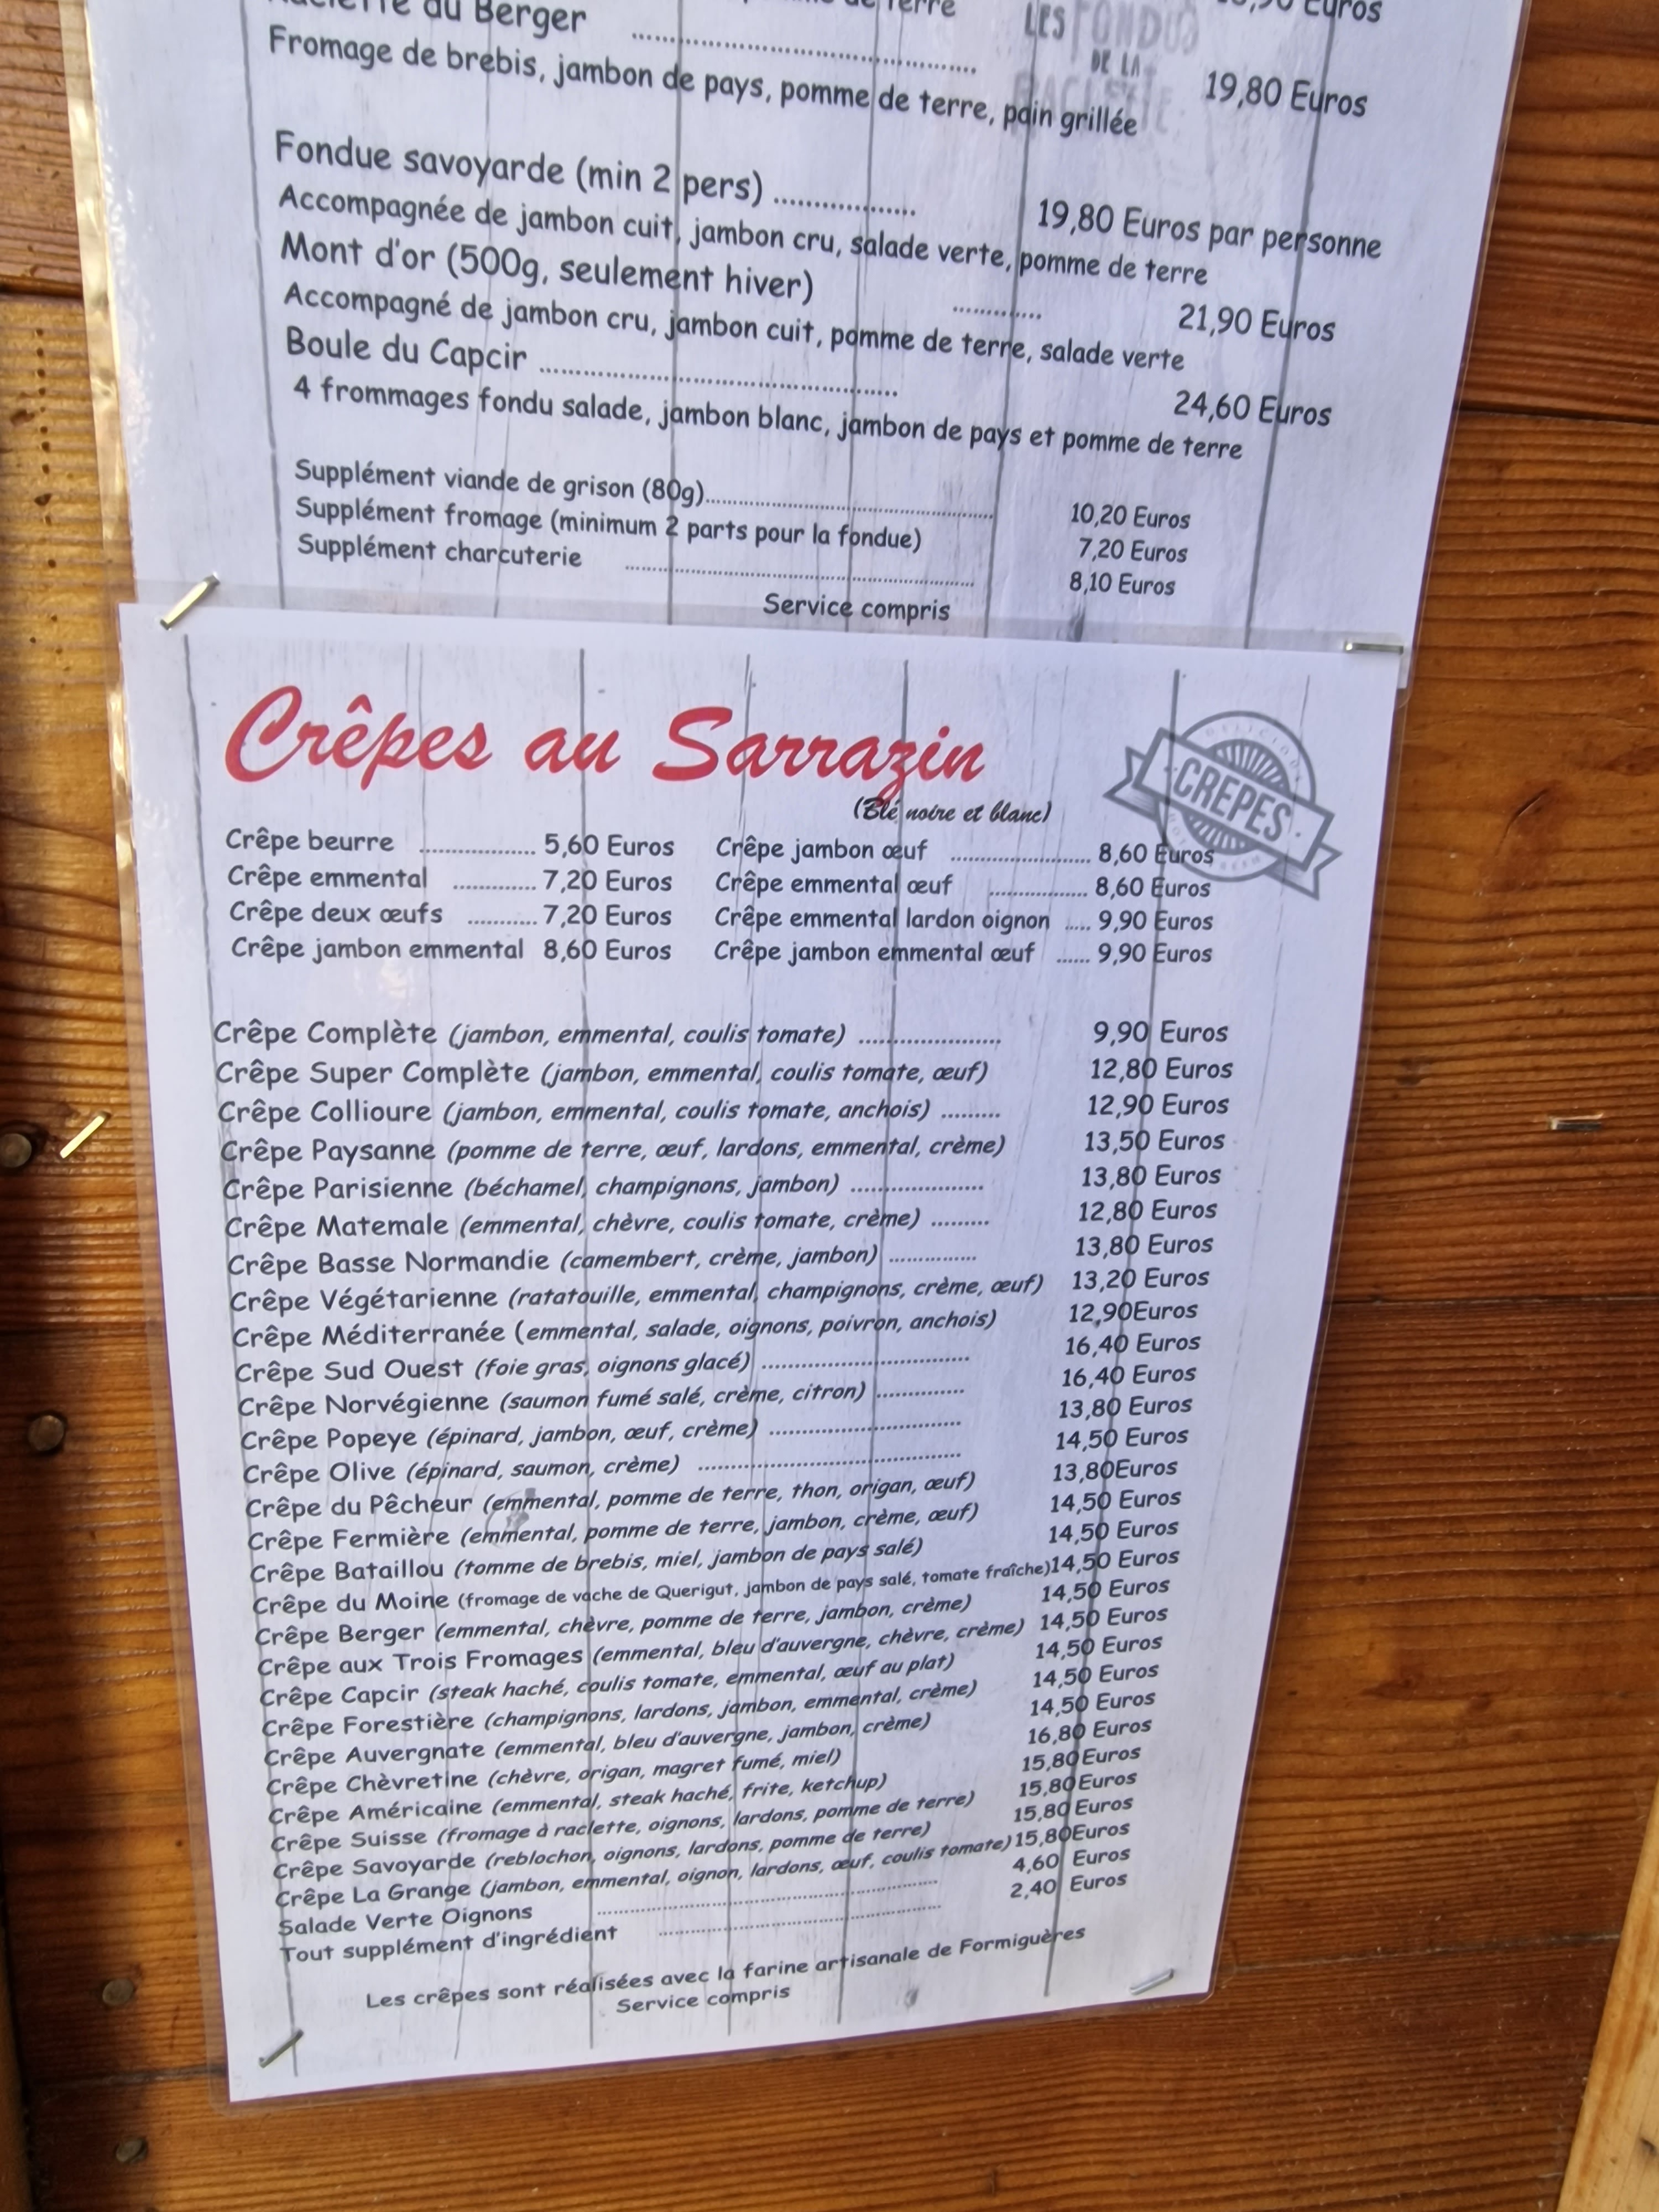 du Berger
Euros
LES FONDUS
DE LA
RACLETTE
19,80 Euros
Fromage de brebis, jambon de pays, pomme de terre, pain grillée
Fondue savoyarde (min 2 pers) ................. 19,80 Euros par personne
Accompagnée de jambon cuit, jambon cru, salade verte, pomme de terre
Mont d'or (500g, seulement hiver) ............. 21,90 Euros
Accompagné de jambon cru, jambon cuit, pomme de terre, salade verte
Boule du Capcir ........................ 24,60 Euros
4 frommages fondu salade, jambon blanc, jambon de pays et pomme de terre
Supplément viande de grison (80g)........................ 10,20 Euros
Supplément fromage (minimum 2 parts pour la fondue) 7,20 Euros
Supplément charcuterie ........................ 8,10 Euros
Service compris
Crêpes au Sarrazin
CREPES
(Blé noire et blanc)
Crêpe beurre ................. 5,60 Euros Crêpe jambon œuf ..................... 8,60 Euros
Crêpe emmental ............ 7,20 Euros Crêpe emmental œuf ............... 8,60 Euros
Crêpe deux œufs .......... 7,20 Euros Crêpe emmental lardon oignon ..... 9,90 Euros
Crêpe jambon emmental 8,60 Euros Crêpe jambon emmental œuf ...... 9,90 Euros
Crêpe Complète (jambon, emmental, coulis tomate) ..................... 9,90 Euros
Crêpe Super Complète (jambon, emmental, coulis tomate, œuf) 12,80 Euros
Crêpe Collioure (jambon, emmental, coulis tomate, anchois) ......... 12,90 Euros
Crêpe Paysanne (pomme de terre, œuf, lardons, emmental, crème) 13,50 Euros
Crêpe Parisienne (béchamel, champignons, jambon) .................... 13,80 Euros
Crêpe Matemale (emmental, chèvre, coulis tomate, crème) ......... 12,80 Euros
Crêpe Basse Normandie (camembert, crème, jambon) .............. 13,80 Euros
Crêpe Végétarienne (ratatouille, emmental, champignons, crème, œuf) 13,20 Euros
Crêpe Méditerranée (emmental, salade, oignons, poivron, anchois) 12,90Euros
Crêpe Sud Ouest (foie gras, oignons glacé) ........................ 16,40 Euros
Crêpe Norvégienne (saumon fumé salé, crème, citron) .............. 16,40 Euros
Crêpe Popeye (épinard, jambon, œuf, crème) ........................ 13,80 Euros
Crêpe Olive (épinard, saumon, crème) ........................ 14,50 Euros
Crêpe du Pêcheur (emmental, pomme de terre, thon, origan, œuf) 13,80Euros
Crêpe Fermière (emmental, pomme de terre, jambon, crème, œuf) 14,50 Euros
Crêpe Bataillou (tomme de brebis, miel, jambon de pays salé) 14,50 Euros
Crêpe du Moine (fromage de vache de Querigut, jambon de pays salé, tomate fraîche)14,50 Euros
Crêpe Berger (emmental, chèvre, pomme de terre, jambon, crème) 14,50 Euros
Crêpe aux Trois Fromages (emmental, bleu d'auvergne, chèvre, crème) 14,50 Euros
Crêpe Capcir (steak haché, coulis tomate, emmental, œuf au plat) 14,50 Euros
Crêpe Forestière (champignons, lardons, jambon, emmental, crème) 14,50 Euros
Crêpe Auvergnate (emmental, bleu d'auvergne, jambon, crème) 14,50 Euros
Crêpe Chèvretine (chèvre, origan, magret fumé, miel) 16,80 Euros
Crêpe Américaine (emmental, steak haché, frite, ketchup) 15,80Euros
Crêpe Suisse (fromage à raclette, oignons, lardons, pomme de terre) 15,80Euros
Crêpe Savoyarde (reblochon, oignons, lardons, pomme de terre) 15,80 Euros
Crêpe La Grange (jambon, emmental, oignon, lardons, œuf, coulis tomate) 15,80Euros
Salade Verte Oignons ........................ 4,60 Euros
Tout supplément d'ingrédient ........................ 2,40 Euros
Les crêpes sont réalisées avec la farine artisanale de Formiguères
Service compris